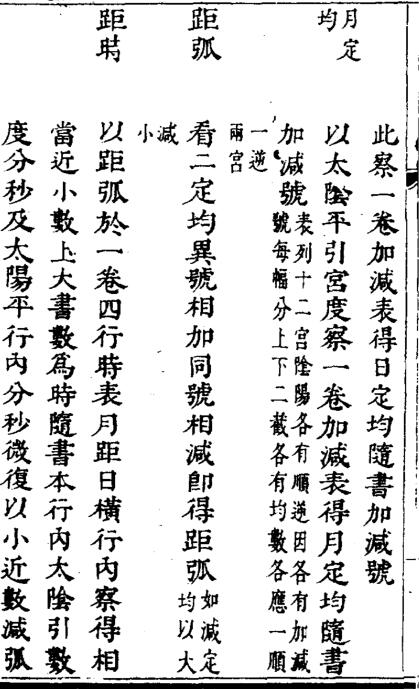 此察一卷加減表得日定均隨書加減號
月定均
以太陰平引宮度察一卷加減表得月定均隨書
加減號表列十二宮陰陽各有順逆因各有加減號每幅分上下二截各有均數各應一順一逆兩宮
距弧
看二定均異號相加同號相減卽得距弧如減定均以大減小
距時
以距弧於一卷四行時表月距日橫行內察得相
當近小數上大書數爲時隨書本行內太陰引數
度分秒及太陽平行內分秒微復以小近數減弧